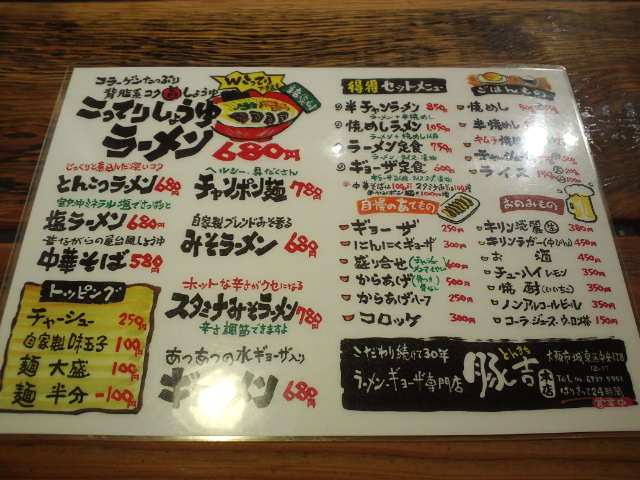 コラーゲンたっぷり
背脂系コク旨しょうゆ
こってりしょうゆ
ラーメン
680円
Wこってり
じっくりと煮込んだ深いコク
とんこつラーメン 680円
ヘルシー、具だくさん
チャンポン麺 780円
塩ラーメン 680円
自家製ブレンドみそ香る
みそラーメン 680円
昔ながらの屋台風しょうゆ
中華そば 580円
トッピング
チャーシュー 250円
自家製味玉子 100円
麺 大盛 100円
麺 半分 -100円
ホットな辛さがクセになる
スタミナみそラーメン 780円
辛さ調節できますよ
あつあつの水ギョーザ入り
ギョーザラーメン 680円
得得 セットメニュー
半チャンラーメン 850円
ラーメン+半焼めし
焼めしラーメン 1,050円
ラーメン+焼めし
ラーメン定食 750円
ギョーザ定食
自慢のあてもの
ギョーザ
にんにくギョーザ 300円
盛り合せ
からあげ
からあげハーフ
コロッケ 300円
ごはんもの
焼めし
半焼めし
キムチ焼めし
ライス
おのみもの
キリン洗麗 生 380円
キリンラガー(中びん) 450円
お 酒 450円
チューハイ レモン 450円
焼酎(いいちこ) 350円
ノンアルコールビール 350円
コーラ・ジュース・ウーロン茶 150円
こだわり続けて30年
ラーメン・ギョーザ専門店
とんきち
豚吉
本店
大阪市城東区
はりきって24時間
営業中